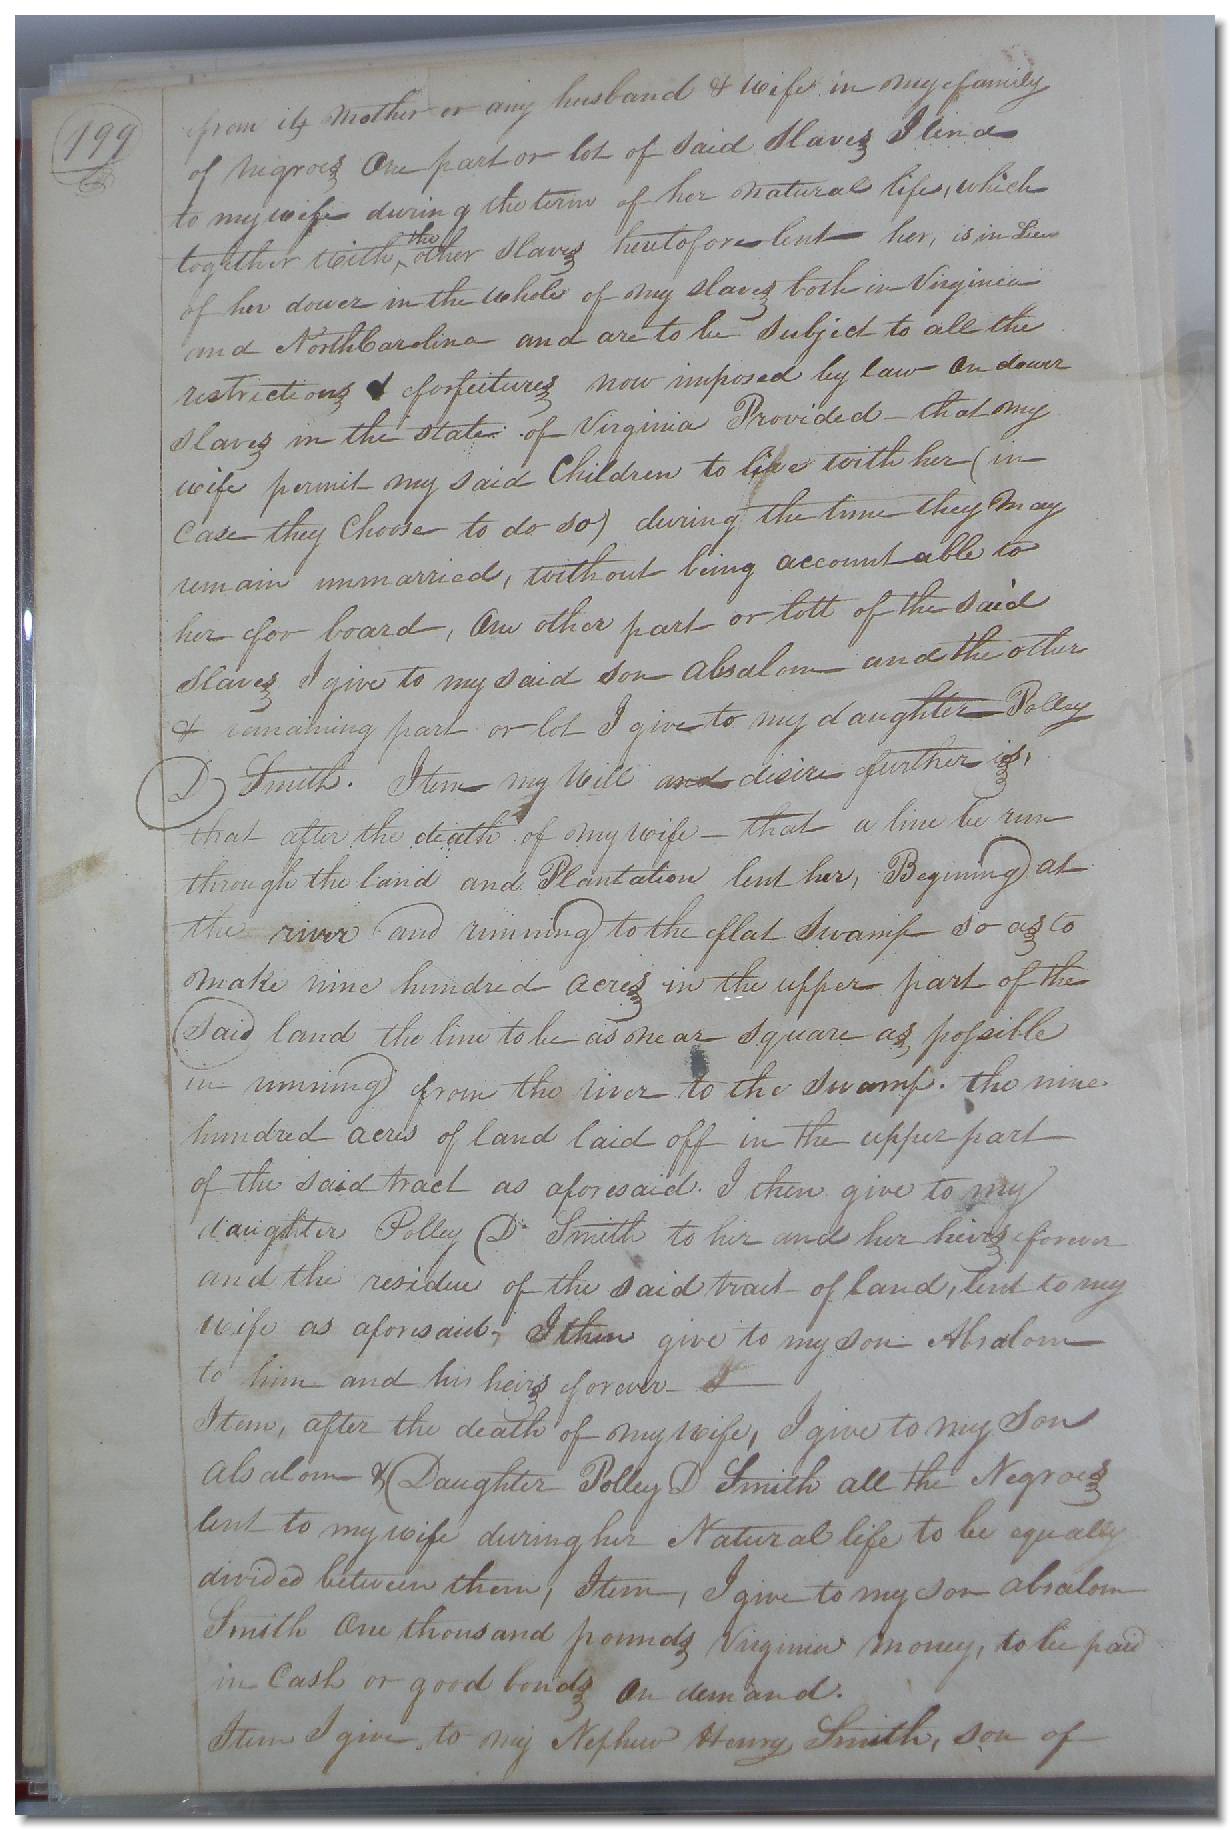 199
from its mother or any husband & wife in my family
of negroes One part or lot of said Slaves I lend
to my wife during the term of her natural life, which
together with the other Slaves heretofore lent her, is in Lieu
of her dower in the whole of my slaves both in Virginia
and North Carolina and are to be subject to all the
restrictions & forfeitures now imposed by law on dower
slaves in the state of Virginia Provided that my
wife permit my said Children to live with her (in
Case they Choose to do so) during the time they may
remain unmarried, without being accountable to
her for board, One other part or lott of the said
Slaves I give to my said son Absalom and the other
& remaining part or lot I give to my daughter Polley
D Smith. Item my Will and desire further is,
that after the death of my wife – that a line be run
through the land and Plantation lent her, Begining at
the river and running to the flat Swamp so as to
make nine hundred acres in the upper part of the
said land the line to be as near square as possible
in running from the river to the Swamp. the nine
hundred acres of land laid off in the upper part
of the said tract as aforesaid. I then give to my
daughter Polley D Smith to her and her heirs forever
and the residue of the said tract of land, lent to my
wife as aforesaid, I then give to my son Absalom
to him and his heirs forever
Item, after the death of my wife, I give to my Son
Absalom & Daughter Polley D Smith all the Negroes
lent to my wife during her Natural life to be equally
divided between them, Item, I give to my son absalom
Smith One thousand pounds Virginia money, to be paid
in Cash or good bonds On demand.
Item I give to my Nephew Henry Smith, son of